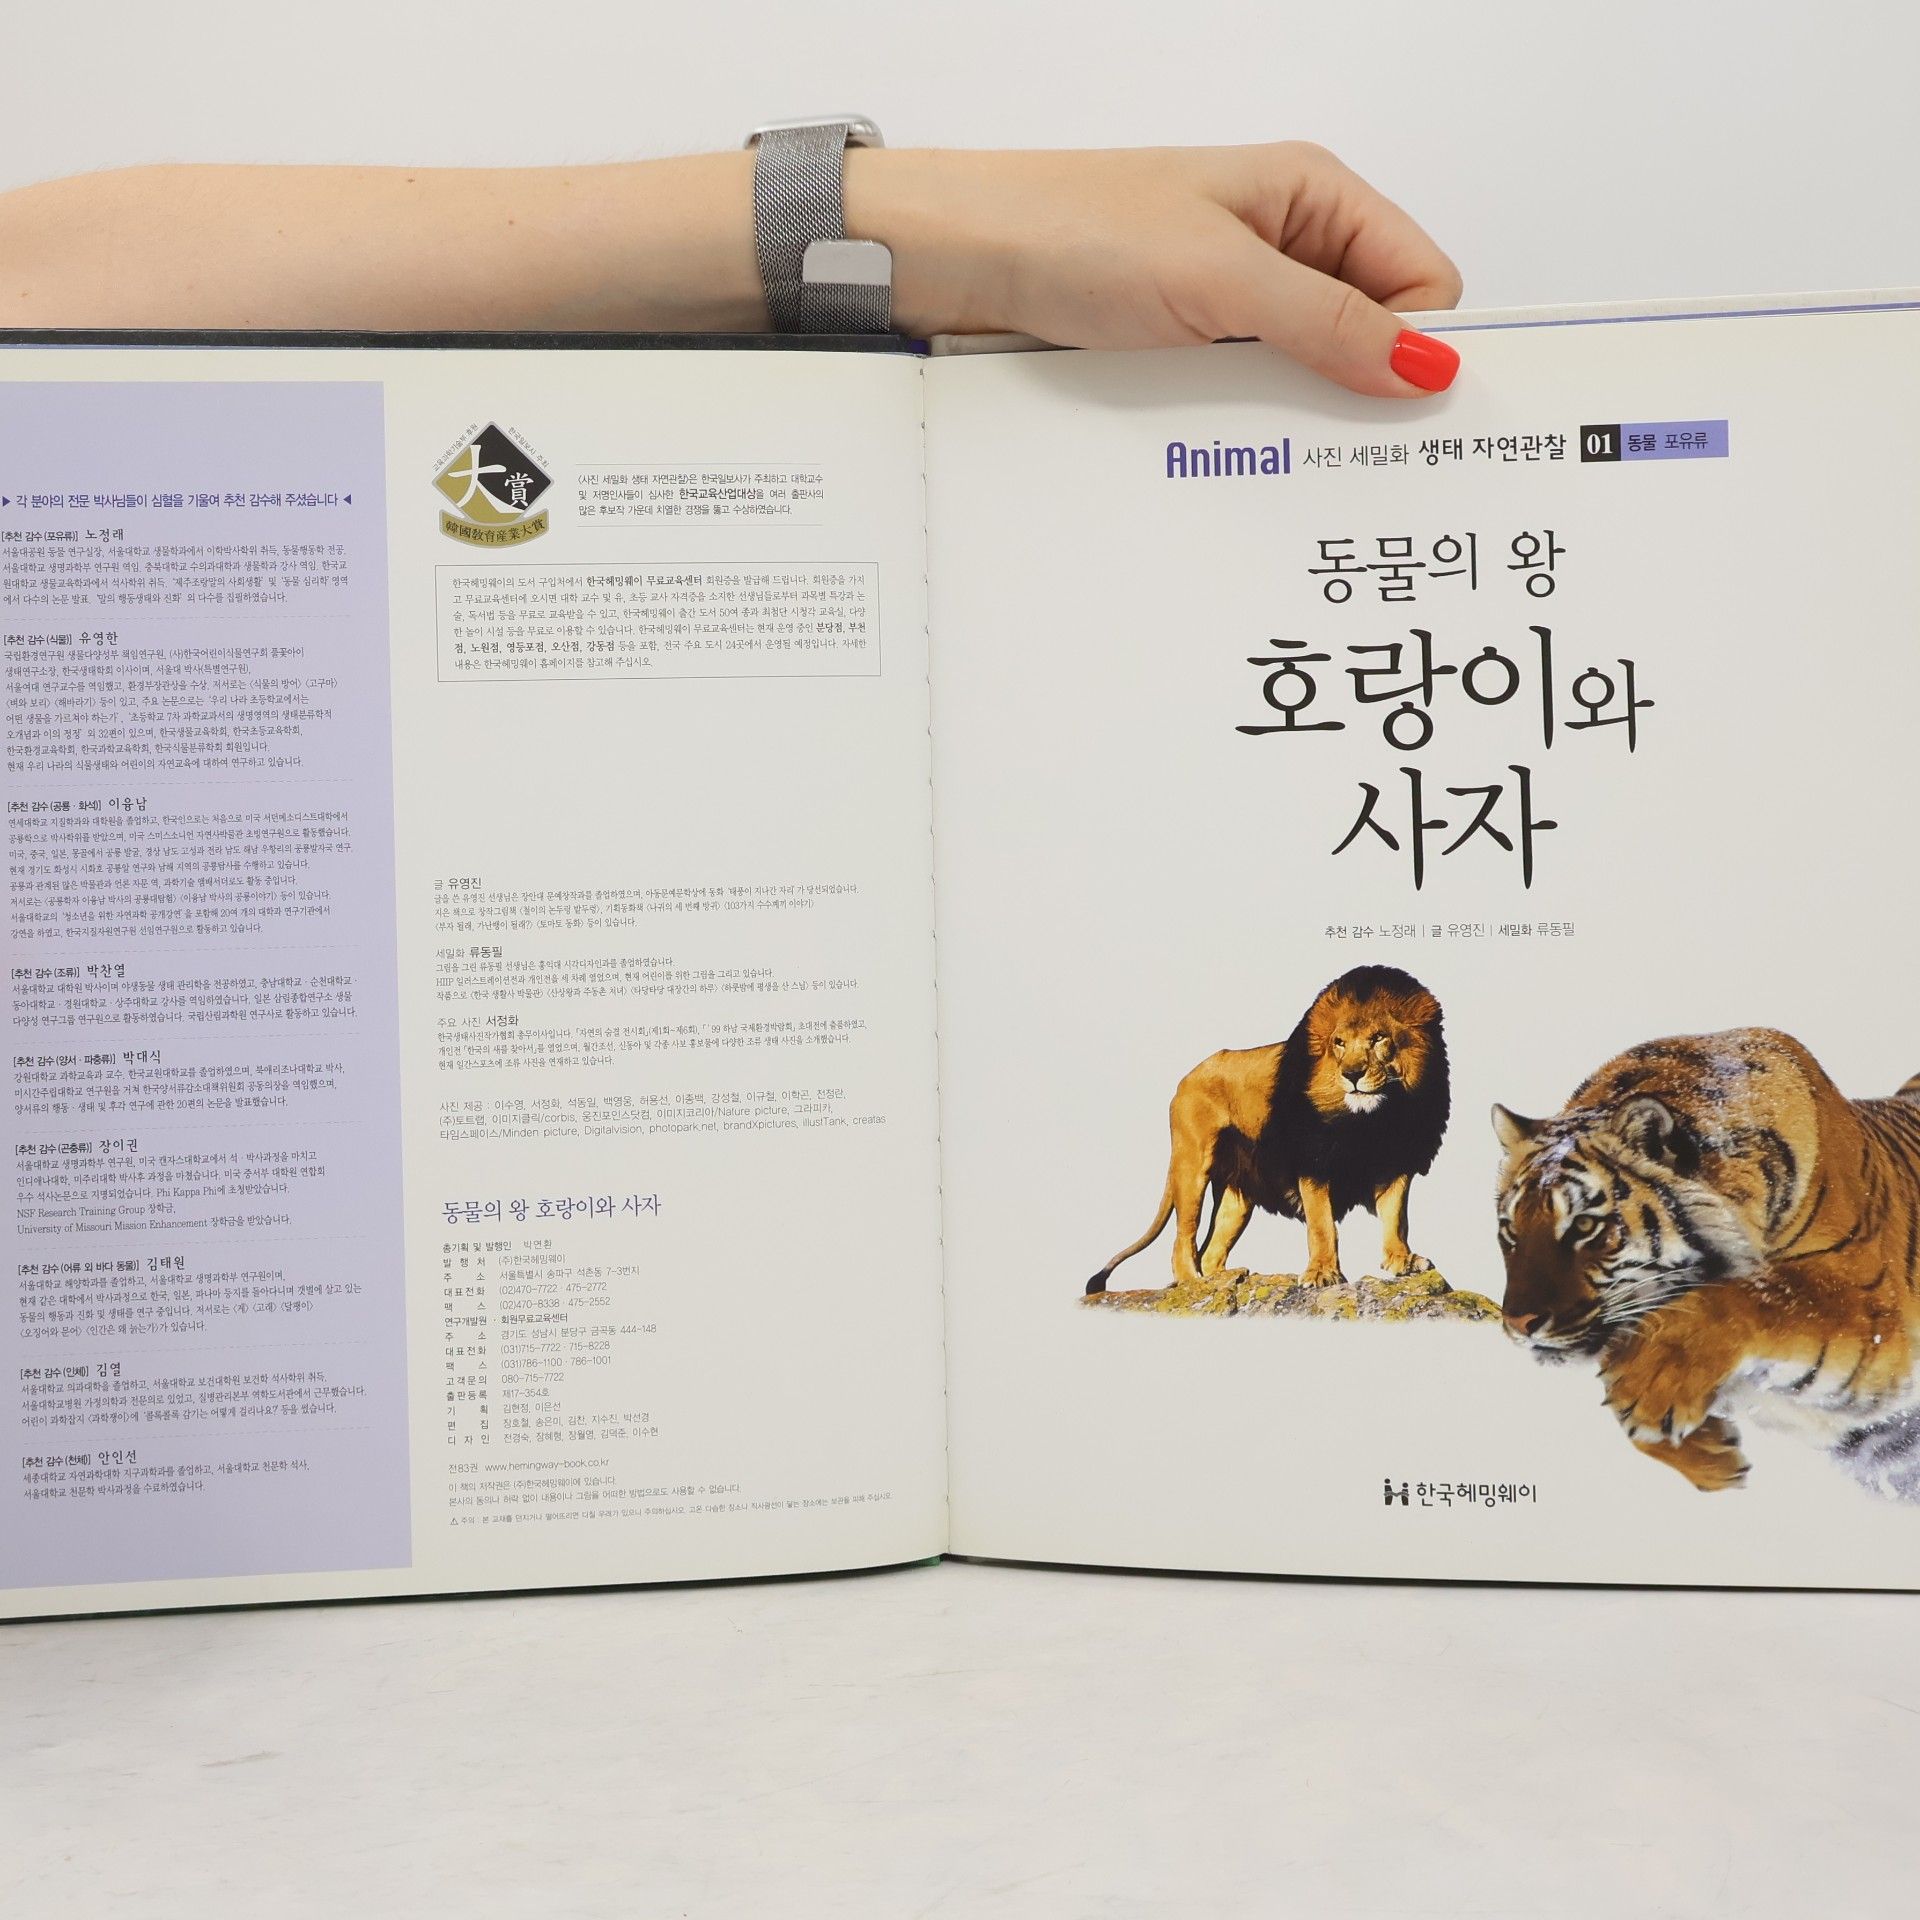 ▶ 각 분야의 전문 박사님들이 심혈을 기울여 추천 감수해 주셨습니다 ◀
[추천 감수(포유류)] 노정래
서울대공원 동물 연구실장, 서울대학교 생물학과에서 이학박사학위 취득, 동물행동학 전공.
서울대학교 생명과학부 연구원 역임. 충북대학교 수의과대학과 생물학과 강사 역임. 한국교
원대학교 생물교육학과에서 석사학위 취득. '제주조랑말의 사회생활' 및 '동물 심리학' 영역
에서 다수의 논문 발표. '말의 행동생태와 진화' 외 다수를 집필하였습니다.
[추천 감수(식물)] 유영한
국립환경연구원 생물다양성부 책임연구원, (사)한국어린이식물연구회 풀꽃아이
생태연구소장, 한국생태학회 이사이며, 서울대 박사(특별연구원),
서울여대 연구교수를 역임했고, 환경부장관상을 수상. 저서로는 〈식물의 방어〉 〈고구마〉
〈벼와 보리〉 〈해바라기〉 등이 있고, 주요 논문으로는 '우리 나라 초등학교에서는
어떤 생물을 가르쳐야 하는가', '초등학교 7차 과학교과서의 생명영역의 생태분류학적
오개념과 이의 정정' 외 32편이 있으며, 한국생물교육학회, 한국초등교육학회,
한국환경교육학회, 한국과학교육학회, 한국식물분류학회 회원입니다.
현재 우리 나라의 식물생태와 어린이의 자연교육에 대하여 연구하고 있습니다.
[추천 감수(공룡·화석)] 이융남
연세대학교 지질학과와 대학원을 졸업하고, 한국인으로는 처음으로 미국 서던메소디스트대학에서
공룡학으로 박사학위를 받았으며, 미국 스미스소니언 자연사박물관 초빙연구원으로 활동했습니다.
미국, 중국, 일본, 몽골에서 공룡 발굴, 경상 남도 고성과 전라 남도 해남 우항리의 공룡발자국 연구,
현재 경기도 화성시 시화호 공룡알 연구와 남해 지역의 공룡탐사를 수행하고 있습니다.
공룡과 관계된 많은 박물관과 언론 자문 역, 과학기술 앰배서더로도 활동 중입니다.
저서로는 〈공룡학자 이융남 박사의 공룡대탐험〉 〈이융남 박사의 공룡이야기〉 등이 있습니다.
서울대학교의 '청소년을 위한 자연과학 공개강연'을 포함해 20여 개의 대학과 연구기관에서
강연을 하였고, 한국지질자원연구원 선임연구원으로 활동하고 있습니다.
[추천 감수(조류)] 박찬열
서울대학교 대학원 박사이며 야생동물 생태 관리학을 전공하였고, 충남대학교·순천대학교·
동아대학교·경원대학교·상주대학교 강사를 역임하였습니다. 일본 삼림종합연구소 생물
다양성 연구그룹 연구원으로 활동하였습니다. 국립산림과학원 연구사로 활동하고 있습니다.
[추천 감수(양서·파충류)] 박대식
강원대학교 과학교육과 교수. 한국교원대학교를 졸업하였으며, 북애리조나대학교 박사,
미시간주립대학교 연구원을 거쳐 한국양서류감소대책위원회 공동의장을 역임했으며,
양서류의 행동·생태 및 후각 연구에 관한 20편의 논문을 발표했습니다.
[추천 감수(곤충류)] 장이권
서울대학교 생명과학부 연구원, 미국 캔자스대학교에서 석·박사과정을 마치고
인디애나대학, 미주리대학 박사후 과정을 마쳤습니다. 미국 중서부 대학원 연합회
우수 석사논문으로 지명되었습니다. Phi Kappa Phi에 초청받았습니다.
NSF Research Training Group 장학금,
University of Missouri Mission Enhancement 장학금을 받았습니다.
[추천 감수(어류 외 바다 동물)] 김태원
서울대학교 해양학과를 졸업하고, 서울대학교 생명과학부 연구원이며,
현재 같은 대학에서 박사과정으로 한국, 일본, 파나마 등지를 돌아다니며 갯벌에 살고 있는
동물의 행동과 진화 및 생태를 연구 중입니다. 저서로는 〈게〉 〈고래〉 〈달팽이〉
〈오징어와 문어〉 〈인간은 왜 늙는가〉가 있습니다.
[추천 감수(인체)] 김열
서울대학교 의과대학을 졸업하고, 서울대학교 보건대학원 보건학 석사학위 취득.
서울대학교병원 가정의학과 전문의로 있었고, 질병관리본부 역학도서관에서 근무했습니다.
어린이 과학잡지 〈과학쟁이〉에 '콜록콜록 감기는 어떻게 걸리나요?' 등을 썼습니다.
[추천 감수(천체)] 안인선
세종대학교 자연과학대학 지구과학과를 졸업하고, 서울대학교 천문학 석사,
서울대학교 천문학 박사과정을 수료하였습니다.
교육과학기술부·후원
한국일보사·주최
大賞
韓國敎育産業大賞
〈사진 세밀화 생태 자연관찰〉은 한국일보사가 주최하고 대학교수
및 저명인사들이 심사한 한국교육산업대상을 여러 출판사의
많은 후보작 가운데 치열한 경쟁을 뚫고 수상하였습니다.
한국헤밍웨이의 도서 구입처에서 한국헤밍웨이 무료교육센터 회원증을 발급해 드립니다. 회원증을 가지
고 무료교육센터에 오시면 대학 교수 및 유, 초등 교사 자격증을 소지한 선생님들로부터 과목별 특강과 논
술, 독서법 등을 무료로 교육받을 수 있고, 한국헤밍웨이 출간 도서 50여 종과 최첨단 시청각 교육실, 다양
한 놀이 시설 등을 무료로 이용할 수 있습니다. 한국헤밍웨이 무료교육센터는 현재 운영 중인 분당점, 부천
점, 노원점, 영등포점, 오산점, 강동점 등을 포함, 전국 주요 도시 24곳에서 운영될 예정입니다. 자세한
내용은 한국헤밍웨이 홈페이지를 참고해 주십시오.
글 유영진
글을 쓴 유영진 선생님은 장안대 문예창작과를 졸업하였으며, 아동문예문학상에 동화 '태풍이 지나간 자리'가 당선되었습니다.
지은 책으로 창작그림책 〈철이의 논두렁 밭두렁〉, 기획동화책 〈나귀의 세 번째 방귀〉 〈103가지 수수께끼 이야기〉
〈부자 될래, 가난뱅이 될래?〉 〈토마토 동화〉 등이 있습니다.
세밀화 류동필
그림을 그린 류동필 선생님은 홍익대 시각디자인과를 졸업하였습니다.
HIIP 일러스트레이션전과 개인전을 세 차례 열었으며, 현재 어린이를 위한 그림을 그리고 있습니다.
작품으로 〈한국 생활사 박물관〉 〈산상왕과 주동촌 처녀〉 〈타당타당 대장간의 하루〉 〈하룻밤에 평생을 산 스님〉 등이 있습니다.
주요 사진 서정화
한국생태사진작가협회 총무이사입니다. 「자연의 숨결 전시회」(제1회~제6회), 「'99 하남 국제환경박람회」 초대전에 출품하였고,
개인전 「한국의 새를 찾아서」를 열었으며, 월간조선, 신동아 및 각종 사보 홍보물에 다양한 조류 생태 사진을 소개했습니다.
현재 일간스포츠에 조류 사진을 연재하고 있습니다.
사진 제공 : 이수영, 서정화, 석동일, 백영웅, 허용선, 이종백, 강성철, 이규철, 이학곤, 천정란,
(주)토트랩, 이미지클릭/corbis, 웅진포인스닷컴, 이미지코리아/Nature picture, 그라피카,
타임스페이스/Minden picture, Digitalvision, photopark.net, brandXpictures, illustTank, creatas
동물의 왕 호랑이와 사자
총기획 및 발행인 박연환
발행처 (주)한국헤밍웨이
주소 서울특별시 송파구 석촌동 7-3번지
대표전화 (02)470-7722·475-2772
팩스 (02)470-8338·475-2552
연구개발원·회원무료교육센터
주소 경기도 성남시 분당구 금곡동 444-148
대표전화 (031)715-7722·715-8228
팩스 (031)786-1100·786-1001
고객문의 080-715-7722
출판등록 제17-354호
기획 김현정, 이은선
편집 장호철, 송은미, 김찬, 지수진, 박선경
디자인 전경숙, 장혜형, 장월영, 김덕준, 이수현
전83권 www.hemingway-book.co.kr
이 책의 저작권은 (주)한국헤밍웨이에 있습니다.
본사의 동의나 허락 없이 내용이나 그림을 어떠한 방법으로도 사용할 수 없습니다.
⚠ 주의 : 본 교재를 던지거나 떨어뜨리면 다칠 우려가 있으니 주의하십시오. 고온 다습한 장소나 직사광선이 닿는 장소에는 보관을 피해 주십시오.
Animal 사진 세밀화 생태 자연관찰 01 동물 포유류
동물의 왕
호랑이와
사자
추천 감수 노정래 | 글 유영진 | 세밀화 류동필
한국헤밍웨이